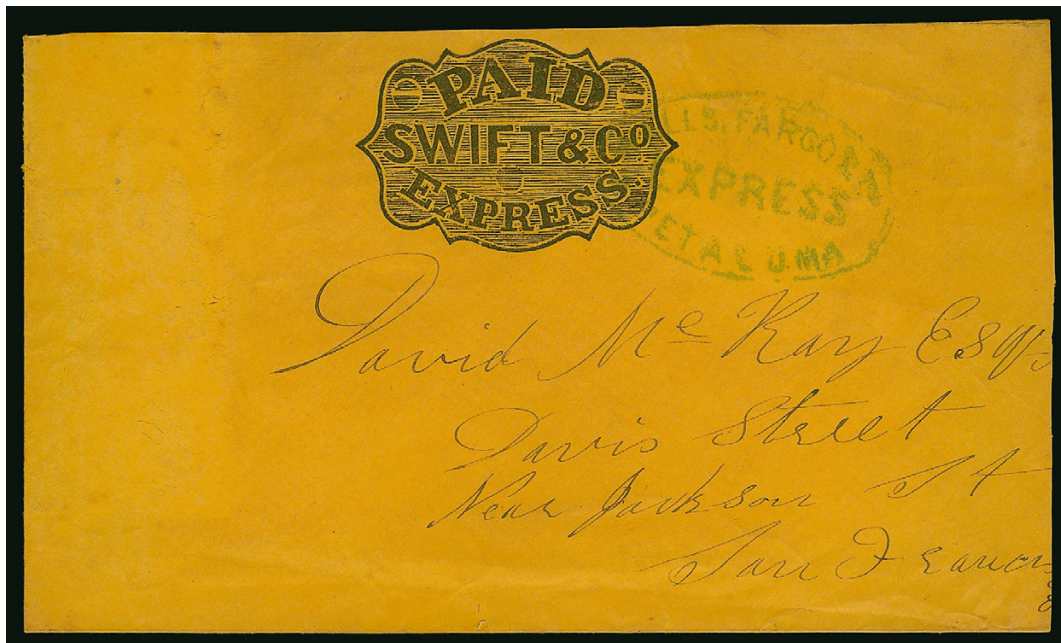 PAID
SWIFT & Co
EXPRESS.
LLS, FARGO &
EXPRESS
ETALUMA
David Mc Kay Esqr
Davis Street
Near Jackson St
San Francis